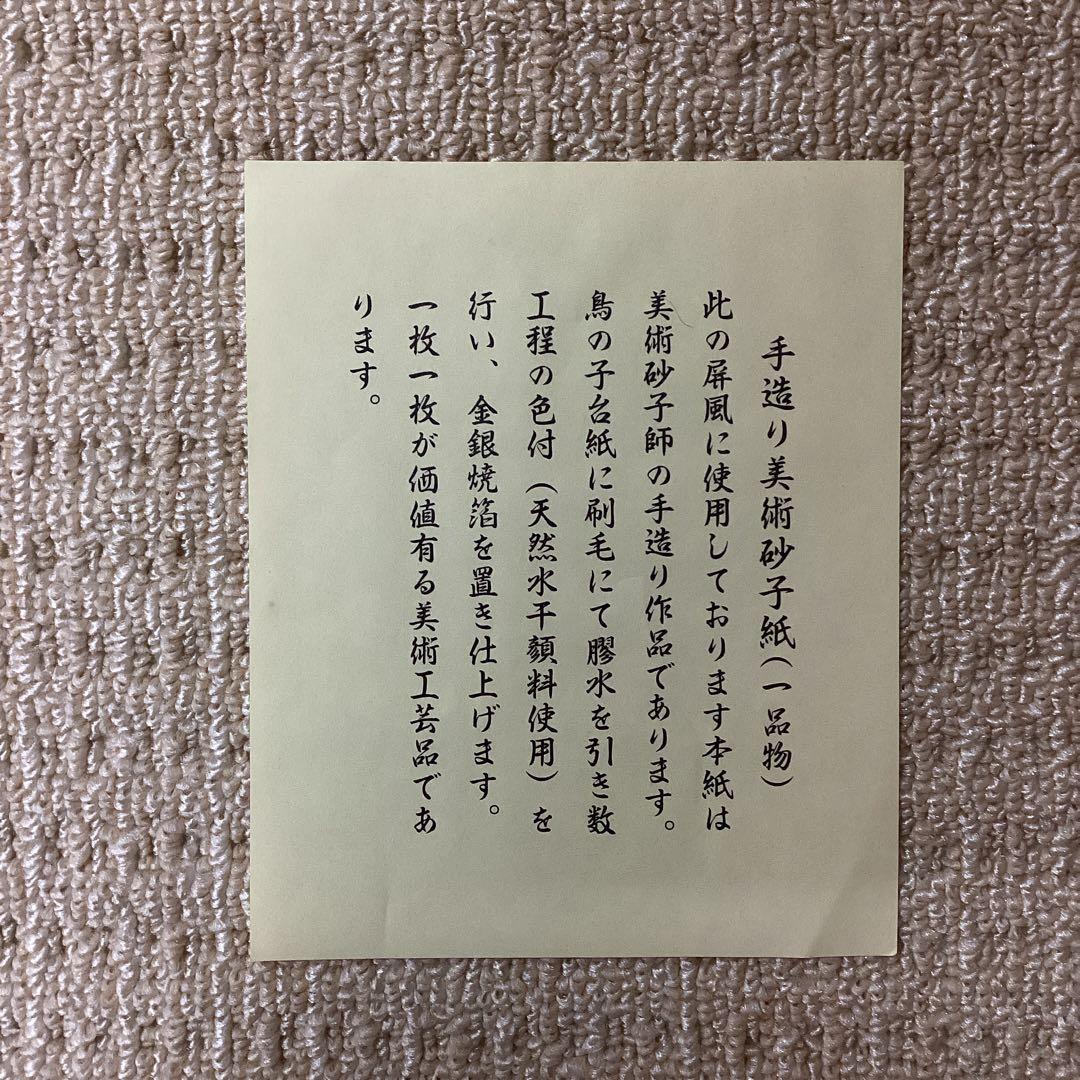 手造り美術砂子紙(一品物)
此の屏風に使用しております本紙は
美術砂子師の手造り作品であります。
鳥の子台紙に刷毛にて膠水を引き数
工程の色付(天然水干顔料使用)を
行い、金銀焼箔を置き仕上げます。
一枚一枚が価値有る美術工芸品であ
ります。